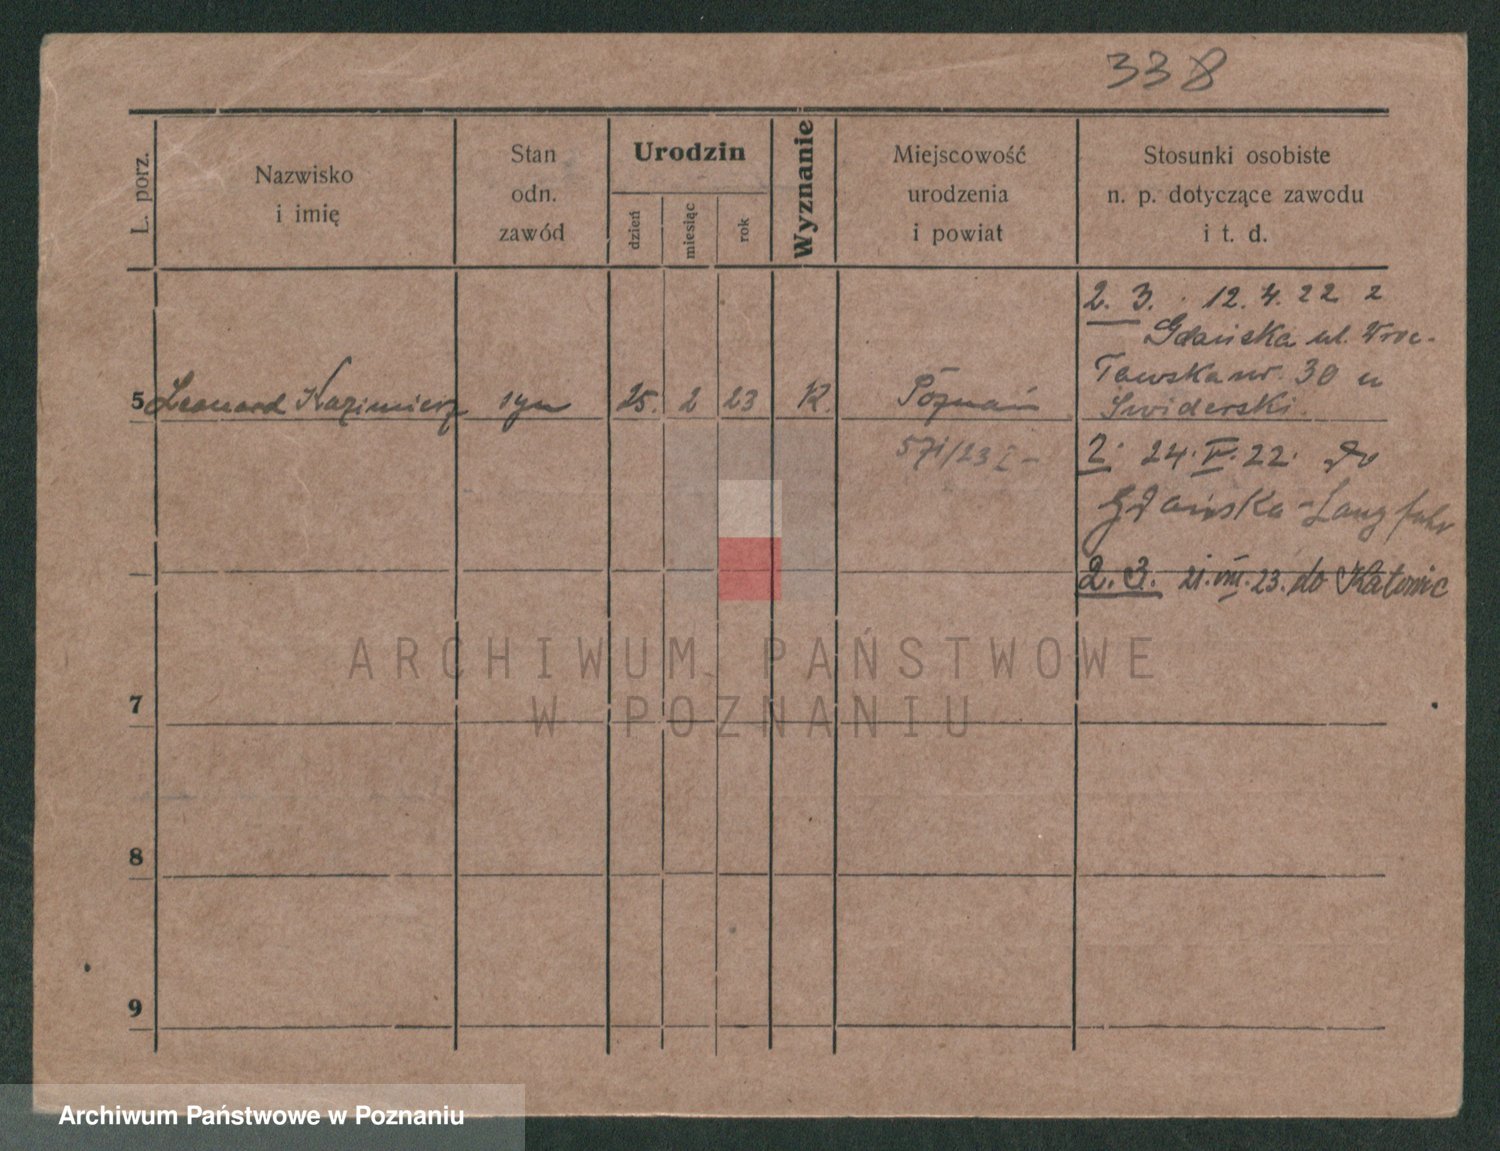 338
L. porz.
Nazwisko
i imię
Stan
odn.
zawód
Urodzin
dzień
miesiąc
rok
Wyznanie
Miejscowość
urodzenia
i powiat
Stosunki osobiste
n. p. dotyczące zawodu
i t. d.
2. 3. 12. 4. 22 z
Gdańska ul. Wroc-
ławska nr. 30 u
Swiderski.
5 Leonard Kazimierz syn 25. 2 23 K. Poznań
571/23 I -
2. 24. V. 22. do
Gdańska-Langfuhr
2. 3. 21. VIII. 23. do Katowic
ARCHIWUM PAŃSTWOWE
W POZNANIU
7
8
9
Archiwum Państwowe w Poznaniu